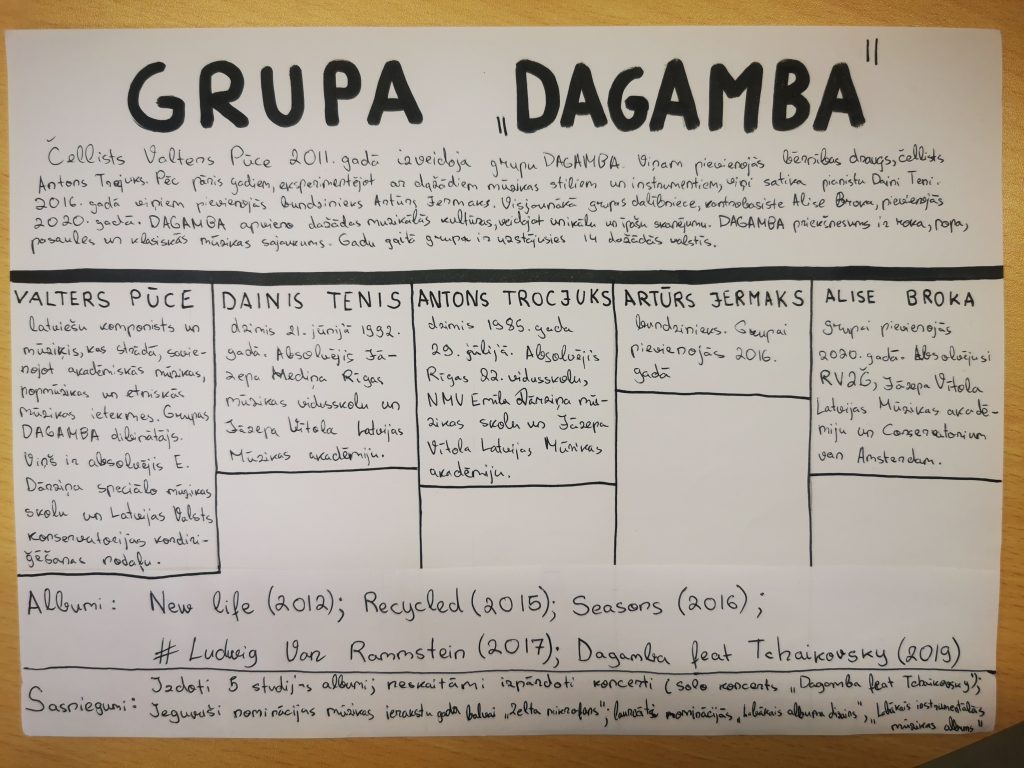 GRUPA „DAGAMBA"
Čellists Valters Pūce 2011. gadā izveidoja grupu DAGAMBA. Viņam pievienojās bērnības draugs, čellists
Antons Trocjuks. Pēc pāris gadiem, eksperimentējot ar dažādiem mūzikas stiliem un instrumentiem, viņi satika pianistu Daini Teni.
2016. gadā viņiem pievienojās bundzinieks Artūrs Jermaks. Visjaunākā grupas dalībniece, kontrabasiste Alise Broka, pievienojās
2020. gadā. DAGAMBA apvieno dažādas muzikālās kultūras, veidojot unikālu un īpašu skanējumu. DAGAMBA priekšnesums ir roka, popa,
pasaules un klasiskās mūzikas sajaukums. Gadu gaitā grupa ir uzstājusies 14 dažādās valstīs.
VALTERS PŪCE
latviešu komponists un
mūziķis, kas strādā, savie-
nojot akadēmiskās mūzikas,
popmūzikas un etniskās
mūzikas ietekmes. Grupas
DAGAMBA dibinātājs.
Viņš ir absolvējis E.
Dārziņa speciālo mūzikas
skolu un Latvijas Valsts
konservatorijas kordiri-
ģēšanas nodaļu.
DAINIS TENIS
dzimis 21. jūnijā 1992.
gadā. Absolvējis Jā-
zepa Mediņa Rīgas
mūzikas vidusskolu un
Jāzepa Vītola Latvijas
Mūzikas akadēmiju.
ANTONS TROCJUKS
dzimis 1985. gada
29. jūlijā. Absolvējis
Rīgas 22. vidusskolu,
NMV Emīla Dārziņa mū-
zikas skolu un Jāzepa
Vītola Latvijas Mūzikas
akadēmiju.
ARTŪRS JERMAKS
bundzinieks. Grupai
pievienojās 2016.
gadā
ALISE BROKA
grupai pievienojās
2020. gadā. Absolvējusi
RV2Ģ, Jāzepa Vītola
Latvijas Mūzikas akadē-
miju un Conservatorium
van Amsterdam.
Albumi: New life (2012); Recycled (2015); Seasons (2016);
# Ludwig Van Rammstein (2017); Dagamba feat Tchaikovsky (2019)
Sasniegumi: Izdoti 5 studijas albumi; neskaitāmi izpārdoti koncerti (solo koncerts „Dagamba feat Tchaikovsky");
Ieguvuši nominācijas mūzikas ierakstu gada balvai "Zelta mikrofons"; laureāts nominācijās „Labākais albuma dizains", „Labākais instrumentālās
mūzikas albums"